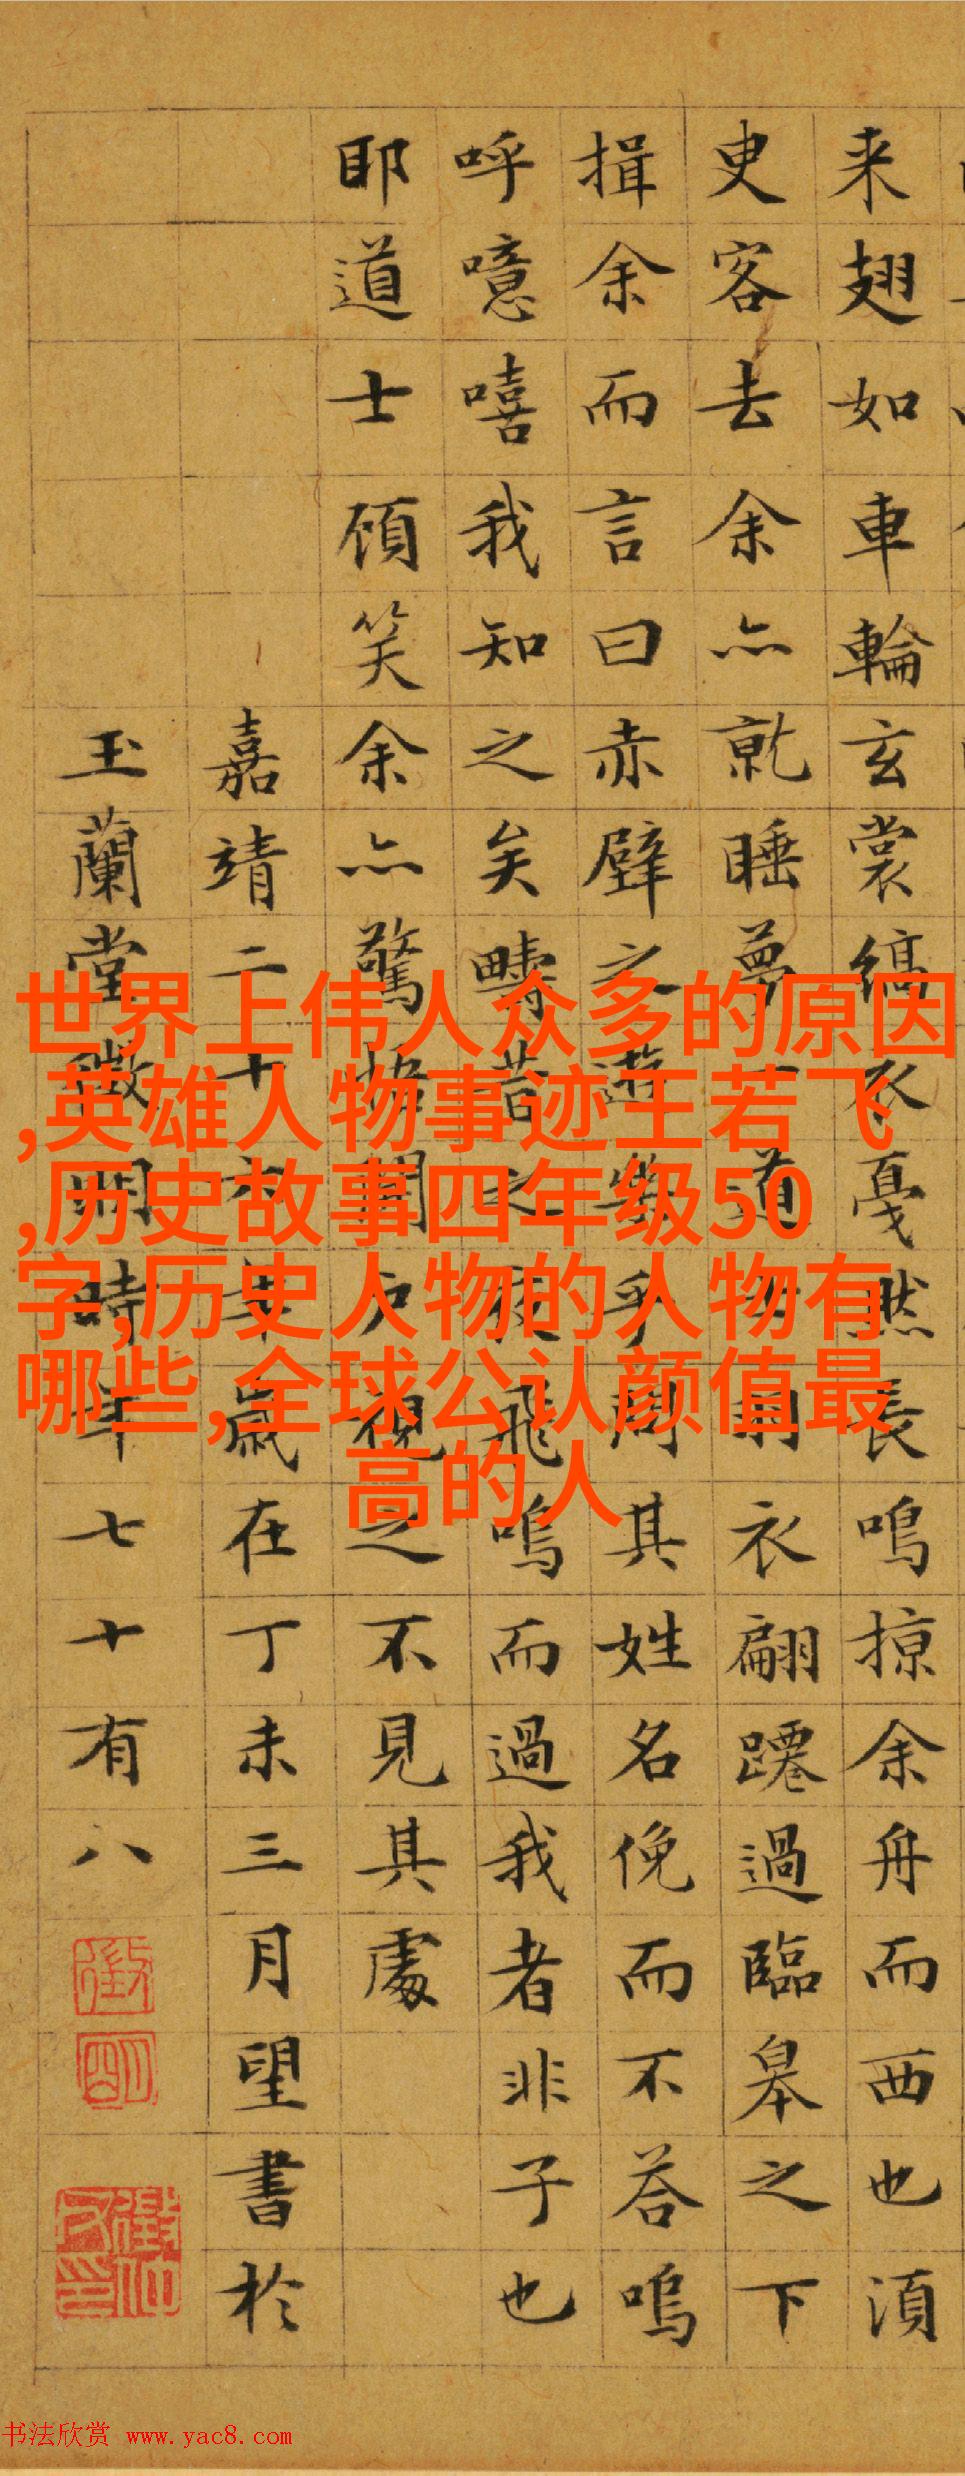 来翅如車輪玄裳縞衣戞然長鳴掠余舟而西也須
臾客去余亦就睡夢一道士羽衣翩躚過臨皋之下
揖余而言曰赤壁之遊樂乎問其姓名俛而不答嗚
呼噫嘻我知之矣疇昔之夜飛鳴而過我者非子也
耶道士顧笑余亦驚悟開戶視之不見其處
嘉靖二十六年歲在丁未三月望書於
玉蘭堂徵明時年七十有八
世界上伟人众多的原因
,英雄人物事迹王若飞
,历史故事四年级50
字,历史人物的人物有
哪些,全球公认颜值最
高的人
书法欣赏 www.yac8.com